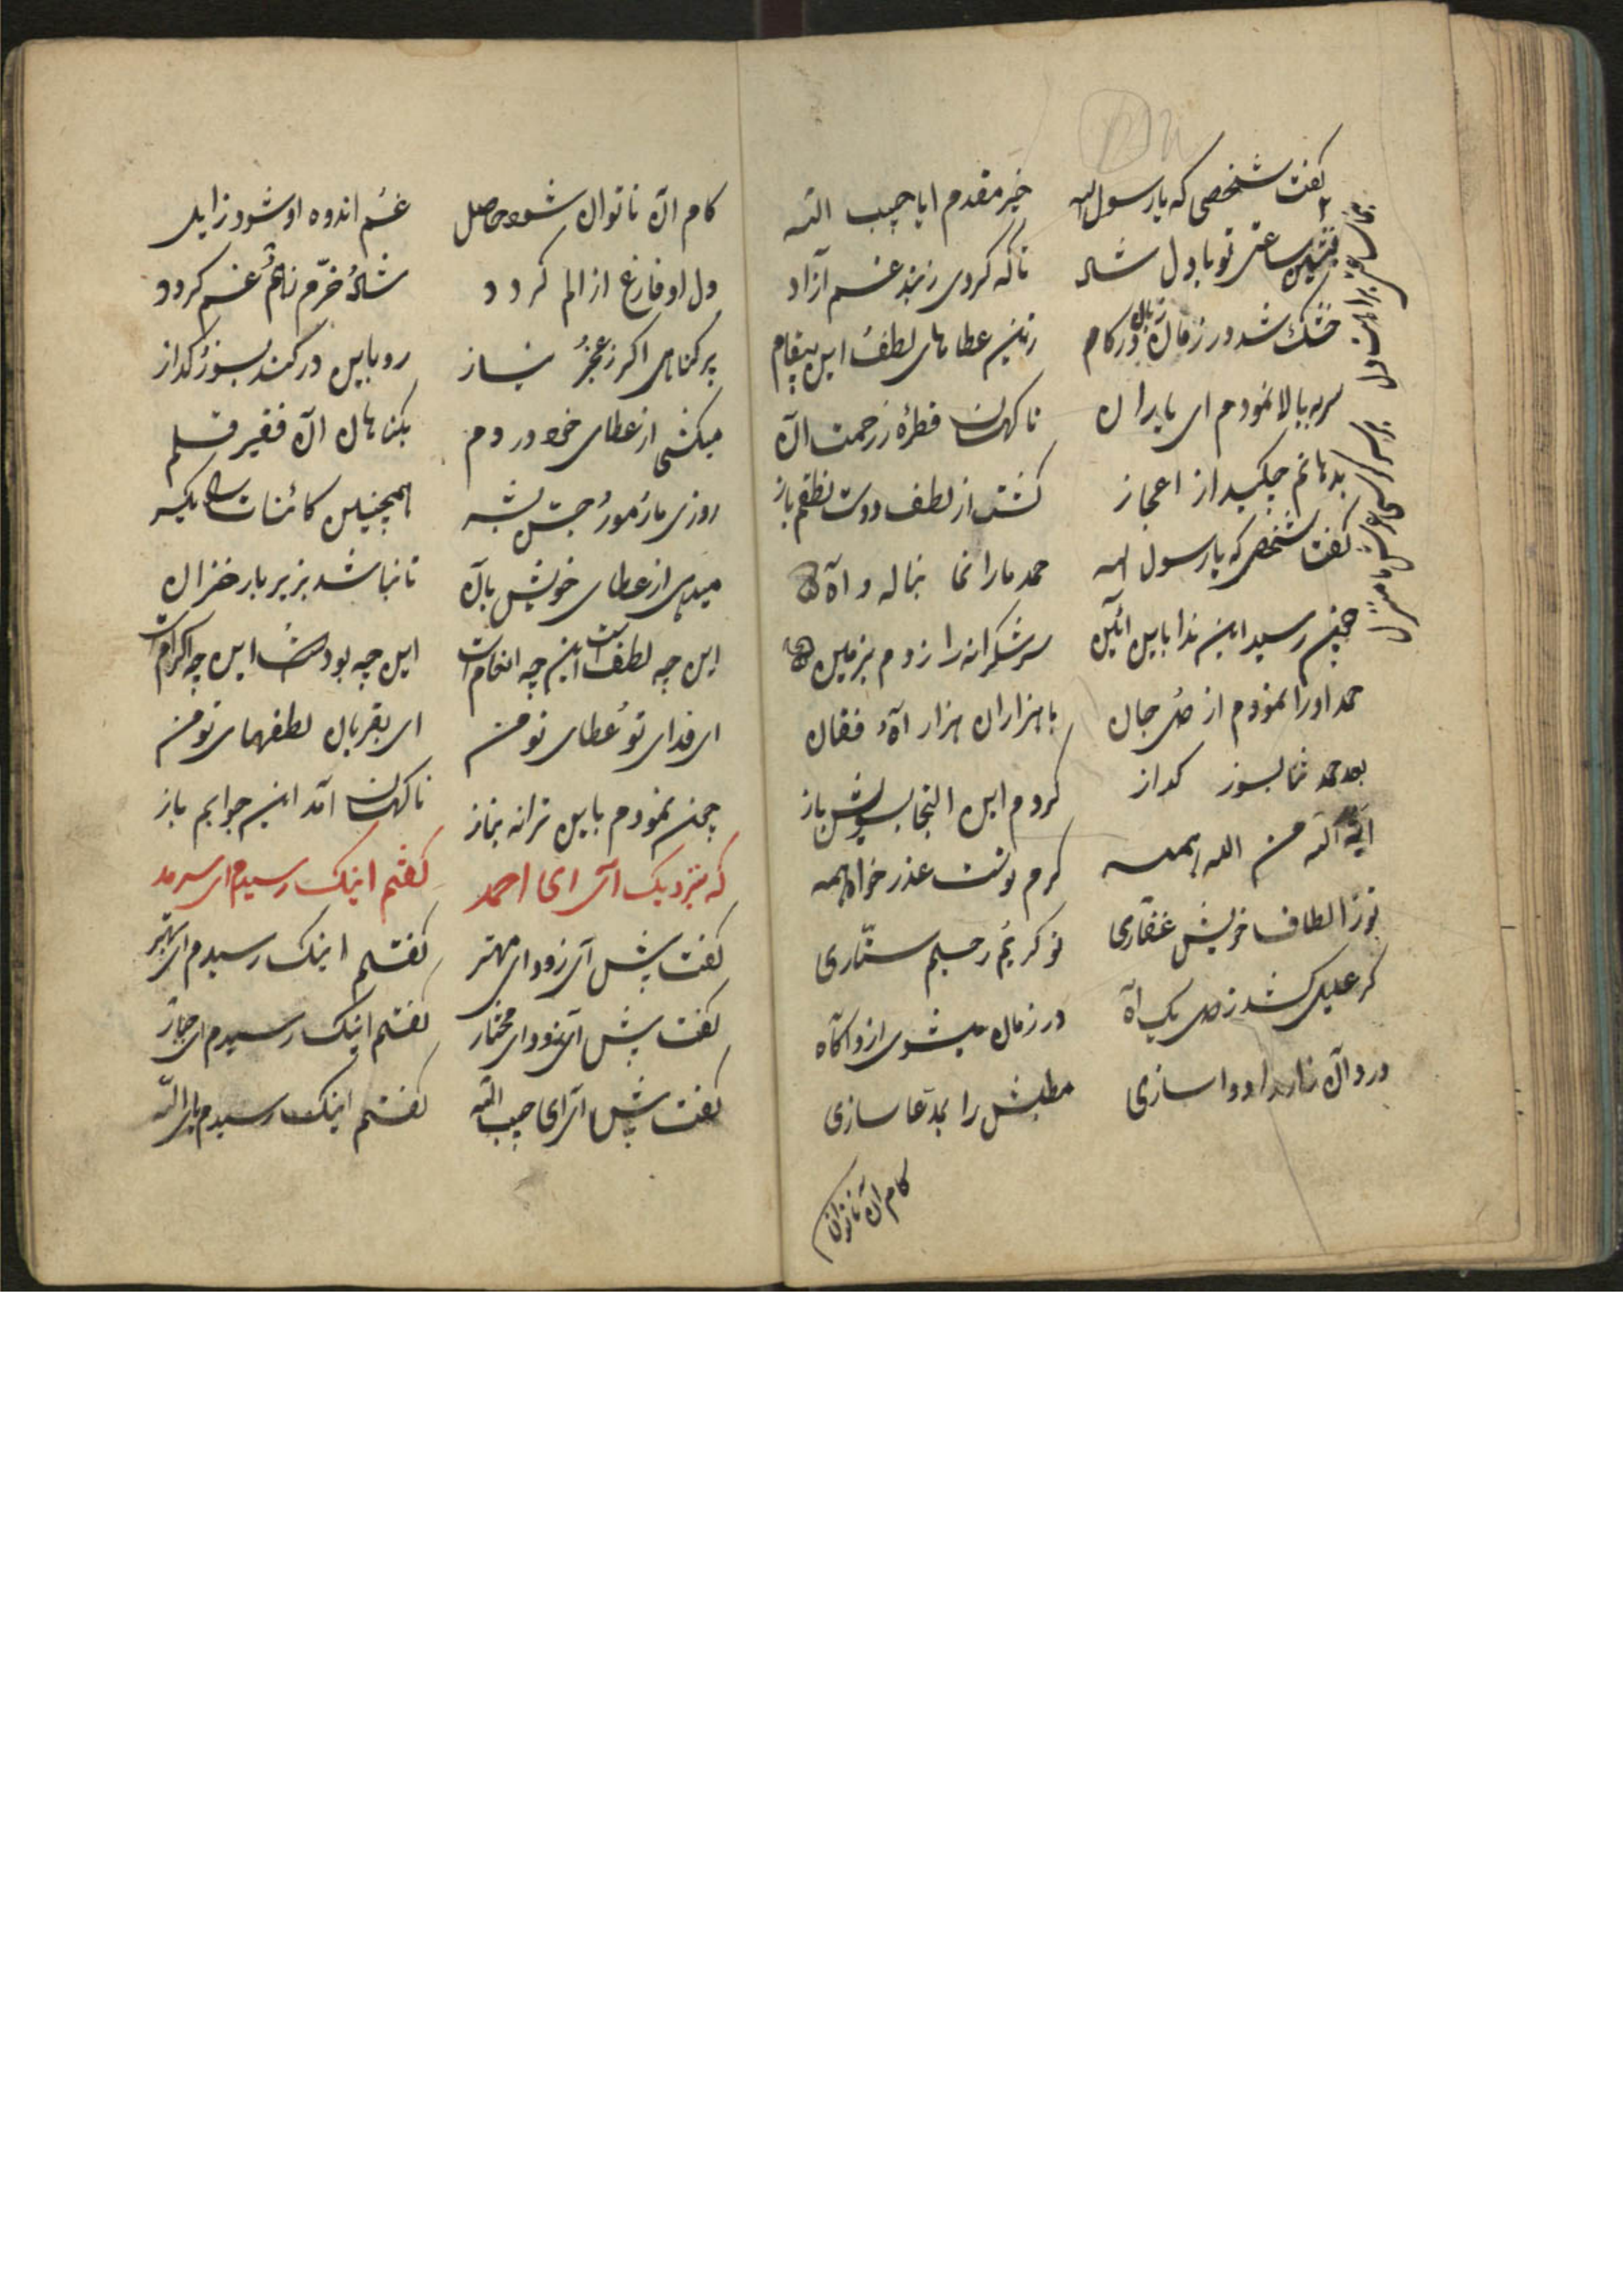 گفت شخصی که یا رسول الله
خیر مقدم ایا حبیب الله
بنشین ساعتی تو با دل شاد
تا که کردی ز بند غم آزاد
خشک شد در زمان زبان در کام
زین عطاهای لطف این پیغام
سر ببالا نمودم ای یاران
ناکهان قطرۀ ز رحمت آن
بدهانم چکید از اعجاز
کشت از لطف دوست نطقم باز
گفت شخصی که یا رسول الله
حمد ما را نما بناله و آه
چنین رسید این ندا باین آئین
سر شکرانه را زدم بزمین
حمد او را نمودم از دل جان
با هزاران هزار آه و فغان
بعد حمد ثنا بسوز کداز
کردم این التجا بسویش باز
کرم تست عذر خواه همه
تو ز الطاف خویش غفاری
تو کریم رحیم ستاری
کر علیلی کشد ز دل یک آه
در زمان میشوی ازو آکاه
درد آن زار را دوا سازی
مطلبش را بمدعا سازی
کام آن ناتوان
کام آن ناتوان شود حاصل
غم اندوه او شود زایل
دل او فارغ از الم کردد
شاد خرم ز اهم غم کردد
پر کناهی اکر ز عجز نیاز
رو باین در کند بسوز کداز
میکشی از عطای خود در دم
بکناهان آن فقیر قلم
روزی مار مور جن بشه
همچنین کائنات را یکسر
میدهی از عطای خویش بآن
تا نباشد بزیر بار خزان
این چه لطف است این چه انعامست
این چه بود است این چه اکرامست
ای فدای تو عطای تو من
ای بقربان لطفهای تو من
چون نمودم باین ترانه نماز
ناکهان آمد این جوابم باز
که بنزدیک آی ای احمد
گفتم اینک رسیدم ای سرمد
گفت پیش آی زود ای مهتر
گفتم اینک رسیدم ای بهتر
گفت پیش آی زود ای مختار
گفتم اینک رسیدم ای جبار
گفت پیش آی ای حبیب الله
گفتم اینک رسیدم یا الله